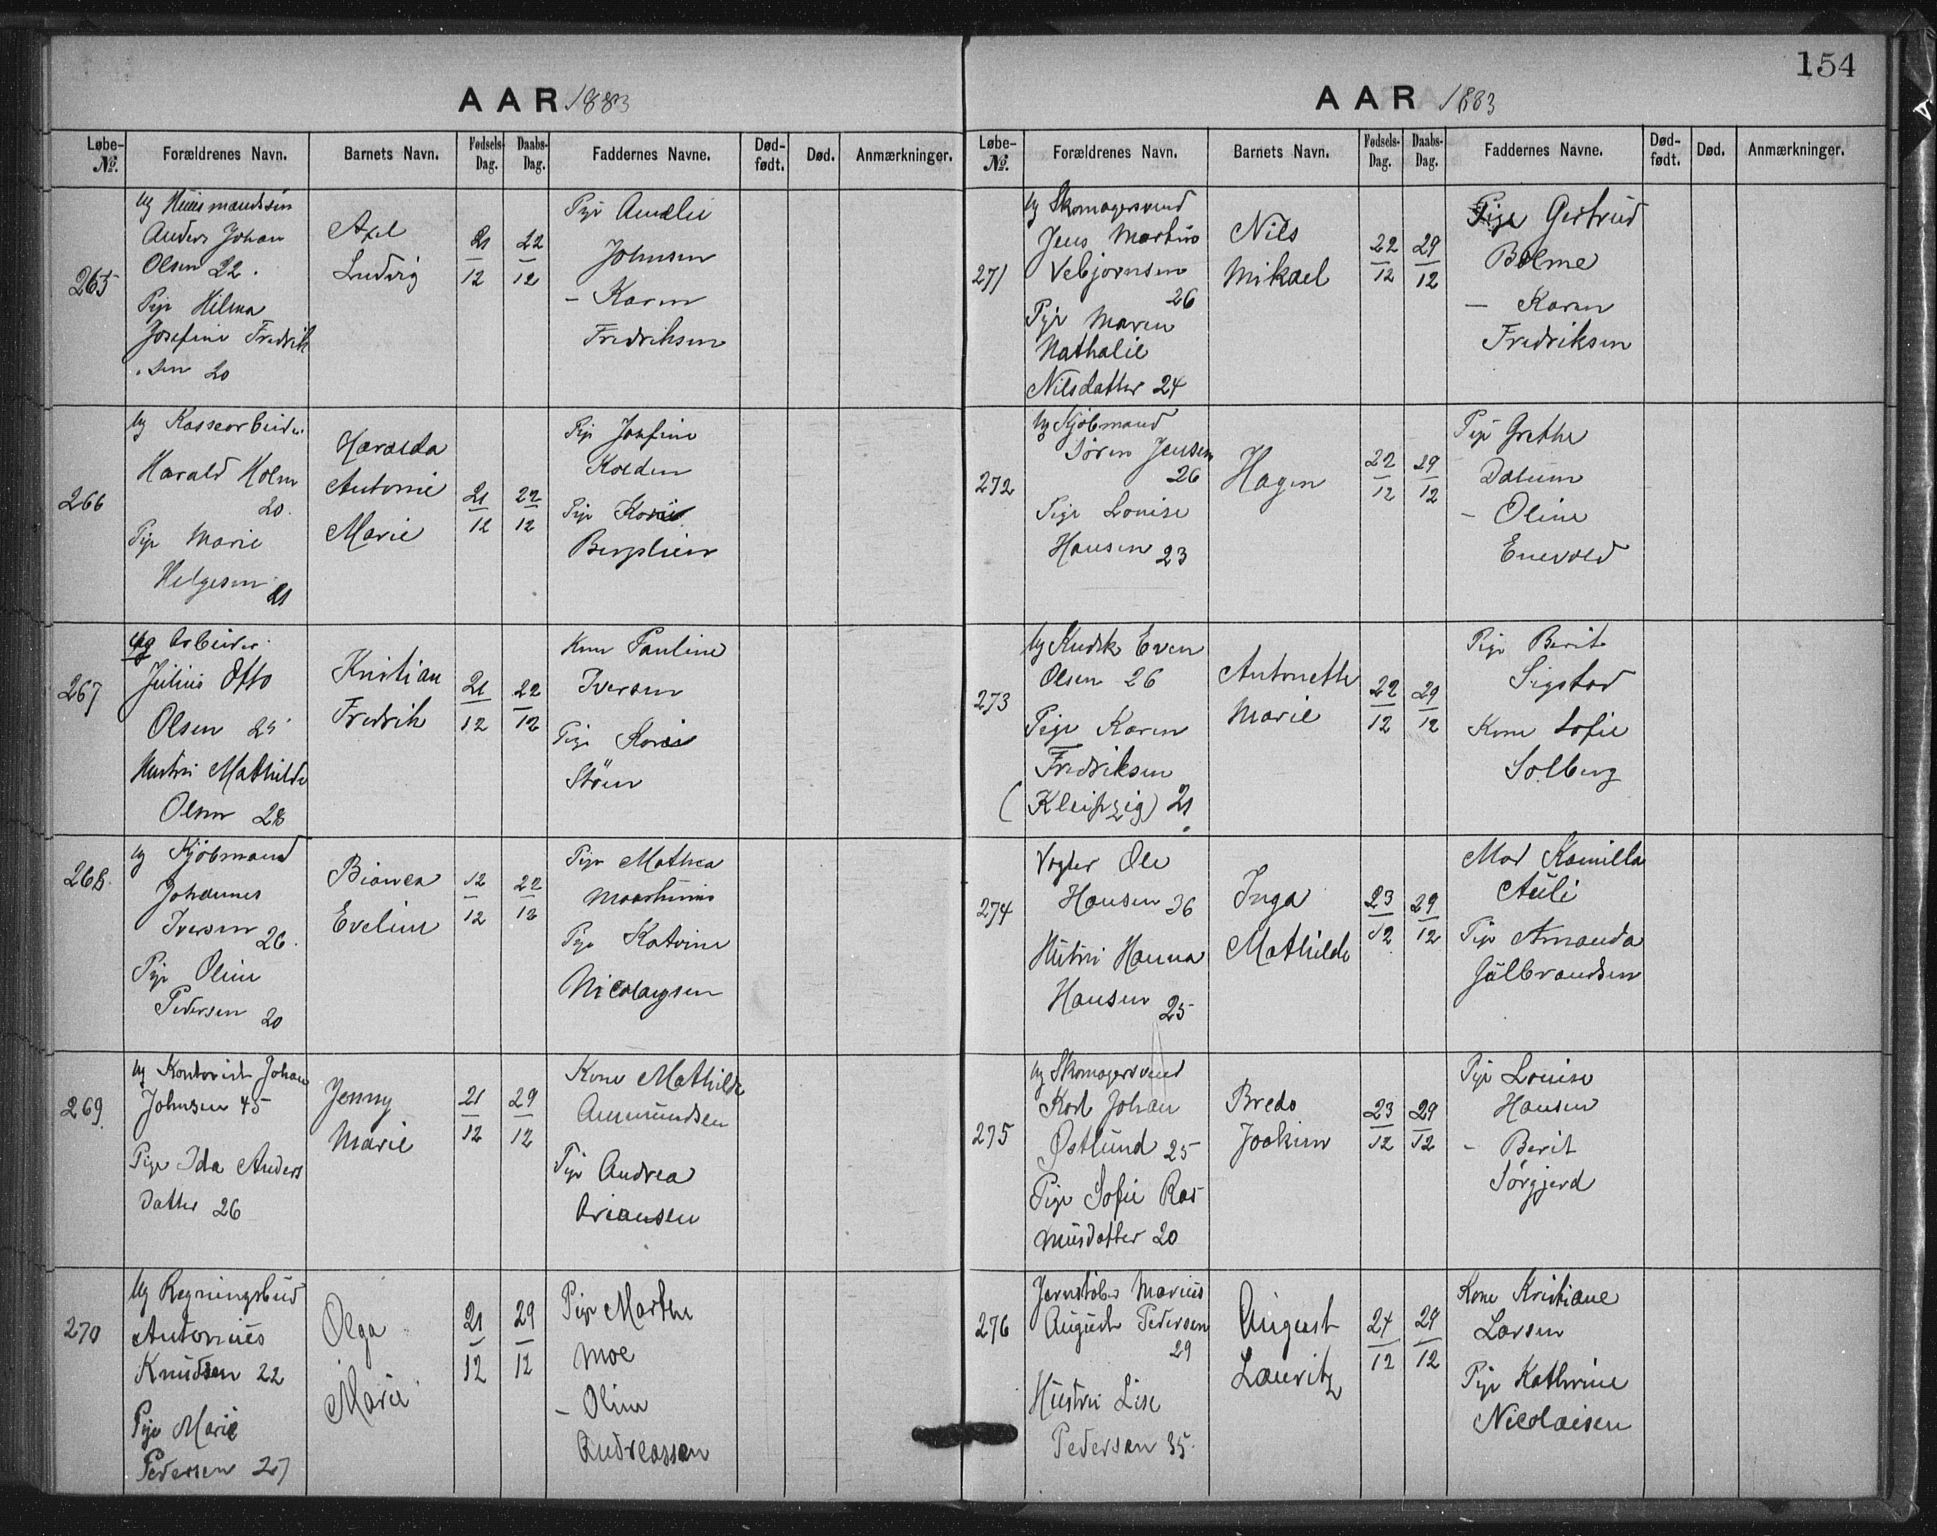 154
AAR 1883
Løbe-No. Forældrenes Navn. Barnets Navn. Fødsels-Dag. Daabs-Dag. Faddernes Navne. Død-født. Død. Anmærkninger.
265
Ug
Anders Johan
Olsen 22.
Pige Hilma
Josefine Fredrik
sen 20
Axel
Ludvig
21/12
22/12
Pige Amalie
Johnsen
– Karen
Fredriksen
266
Ug
Harald Holm
20.
Pige Marie
Helgesen
21
Haralda
Antonie
Marie
21/12
22/12
Pige Josefine
Kolden
Pige
267
Ug Arbeider
Julius Otto
Olsen 25
Hustru Mathilde
Olsen 28
Kristian
Fredrik
21/12
22/12
Kone Pauline
Iversen
Pige
Støen
268.
Ug Kjøbmand
Johannes
Iversen 26.
Pige Oline
Pedersen 20
Bianca
Eveline
12/12
22/12
Pige Mathea
Pige Katrine
Nicolaysen
269.
Ug Kontorist Johan
Johnsen 45
Pige Ida Anders
datter 26
Jenny
Marie
21/12
29/12
Kone Mathilde
Ammundsen
Pige Andrea
Ariansen
270
Ug Regningsbud
Antonius
Knudsen 22
Pige Marie
Pedersen 27
Olga
Marie
21/12
29/12
Pige Marthe
Moe
– Oline
Andreassen
AAR 1883
Løbe-No. Forældrenes Navn. Barnets Navn. Fødsels-Dag. Daabs-Dag. Faddernes Navne. Død-født. Død. Anmærkninger.
271
Ug Skomagersvend
Jens Martin
Vebjørnsen
26
Pige Maren
Nathalie
Nilsdatter 24
Nils
Mikael
22/12
29/12
Pige Gertrud
Bolme
– Karen
Fredriksen
272
Ug Kjøbmand
Søren Jensen
26
Pige Louise
Hansen 23
Hagen
22/12
29/12
Pige Grethe
Dalum
– Oline
Enevold
273
Ug Kudsk Even
Olsen 26
Pige Karen
Fredriksen
(Kleipzig) 21
Antonette
Marie
22/12
29/12
Pige Berit
Sigstad
Kone Sofie
Solberg
274
Vogter Ole
Hansen 36
Hustru Hanna
Hansen 25
Inga
Mathilde
23/12
29/12
Mad Kamilla
Auli
Pige Amanda
Gulbrandsen
275
Ug Skomagersvend
Karl Johan
Østlund 25
Pige Sofie Ras
musdatter 20
Bredo
Joakim
23/12
29/12
Pige Louise
Hansen
– Berit
Sørgjerd
276
Jernstøber Marius
August Pedersen
29
Hustru Lise
Pedersen 35.
August
Lauritz
24/12
29/12
Kone Kristiane
Larsen
Pige Kathrine
Nicolaisen